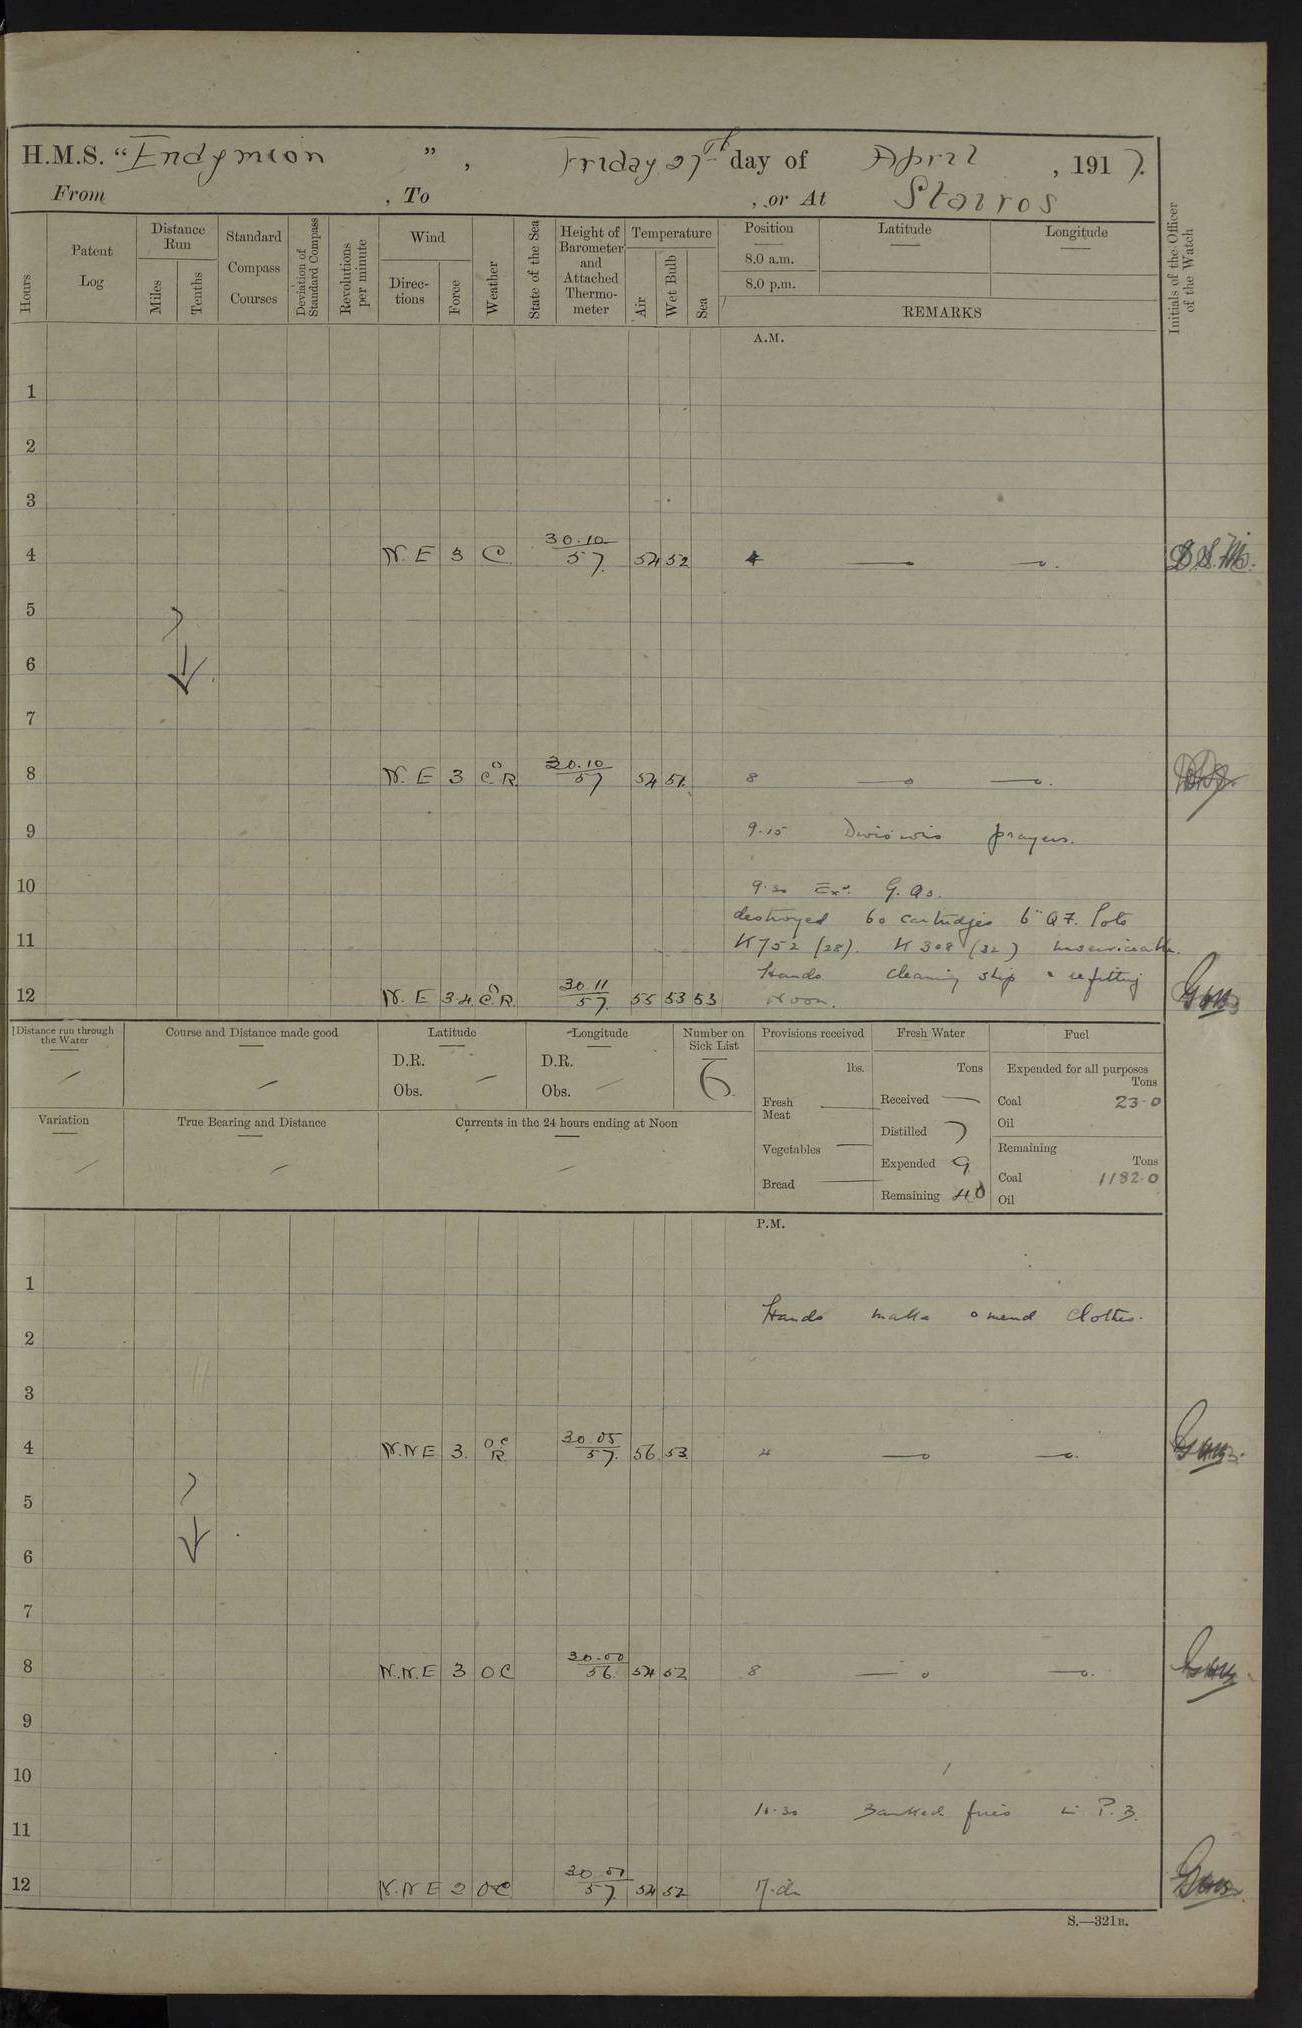 H.M.S. “Endymion ” , Friday 27th day of April , 1917.
From , To , or At Stavros
Hours
Patent Log
Distance Run
Miles
Tenths
Standard Compass Courses
Deviation of Standard Compass
Revolutions per minute
Wind
Directions
Force
Weather
State of the Sea
Height of Barometer and Attached Thermometer
Temperature
Air
Wet Bulb
Sea
Position
8.0 a.m.
8.0 p.m.
Latitude
Longitude
REMARKS
Initials of the Officer of the Watch
A.M.
1
2
3
4 N.E 3 C 30.10 57 54 52 4
5
6
7
8 N.E 3 O C.R 30.10 57 54 51 8
9 9.15 Divisions prayers.
10 9.30 Exd. G. Qs.
destroyed 60 cartridges 6" Q F. Lots
11 K752 (28). K 308 (32) unserviceable.
Hands cleaning ship & refitting
12 N.E 3.4 O C.R. 30.11 57 55 53 53 Noon.
Distance run through the Water
Course and Distance made good
Latitude
D.R.
Obs.
Longitude
D.R.
Obs.
Number on Sick List
6
Provisions received
lbs.
Fresh Meat
Vegetables
Bread
Fresh Water
Tons
Received
Distilled 7
Expended 9
Remaining 40
Fuel
Expended for all purposes
Tons
Coal 23.0
Oil
Remaining
Tons
Coal 1182.0
Oil
Variation
True Bearing and Distance
Currents in the 24 hours ending at Noon
P.M.
1
Hands make & mend clothes.
2
3
4 N.NE 3. O C R 30.05 57 56 53 4
5
6
7
8 N.N.E 3 O C 30.00 56 54 52 8
9
10
10.30 Banked fires in P.B.
11
12 N.N E 2 O C 57 54 52
S.—321B.